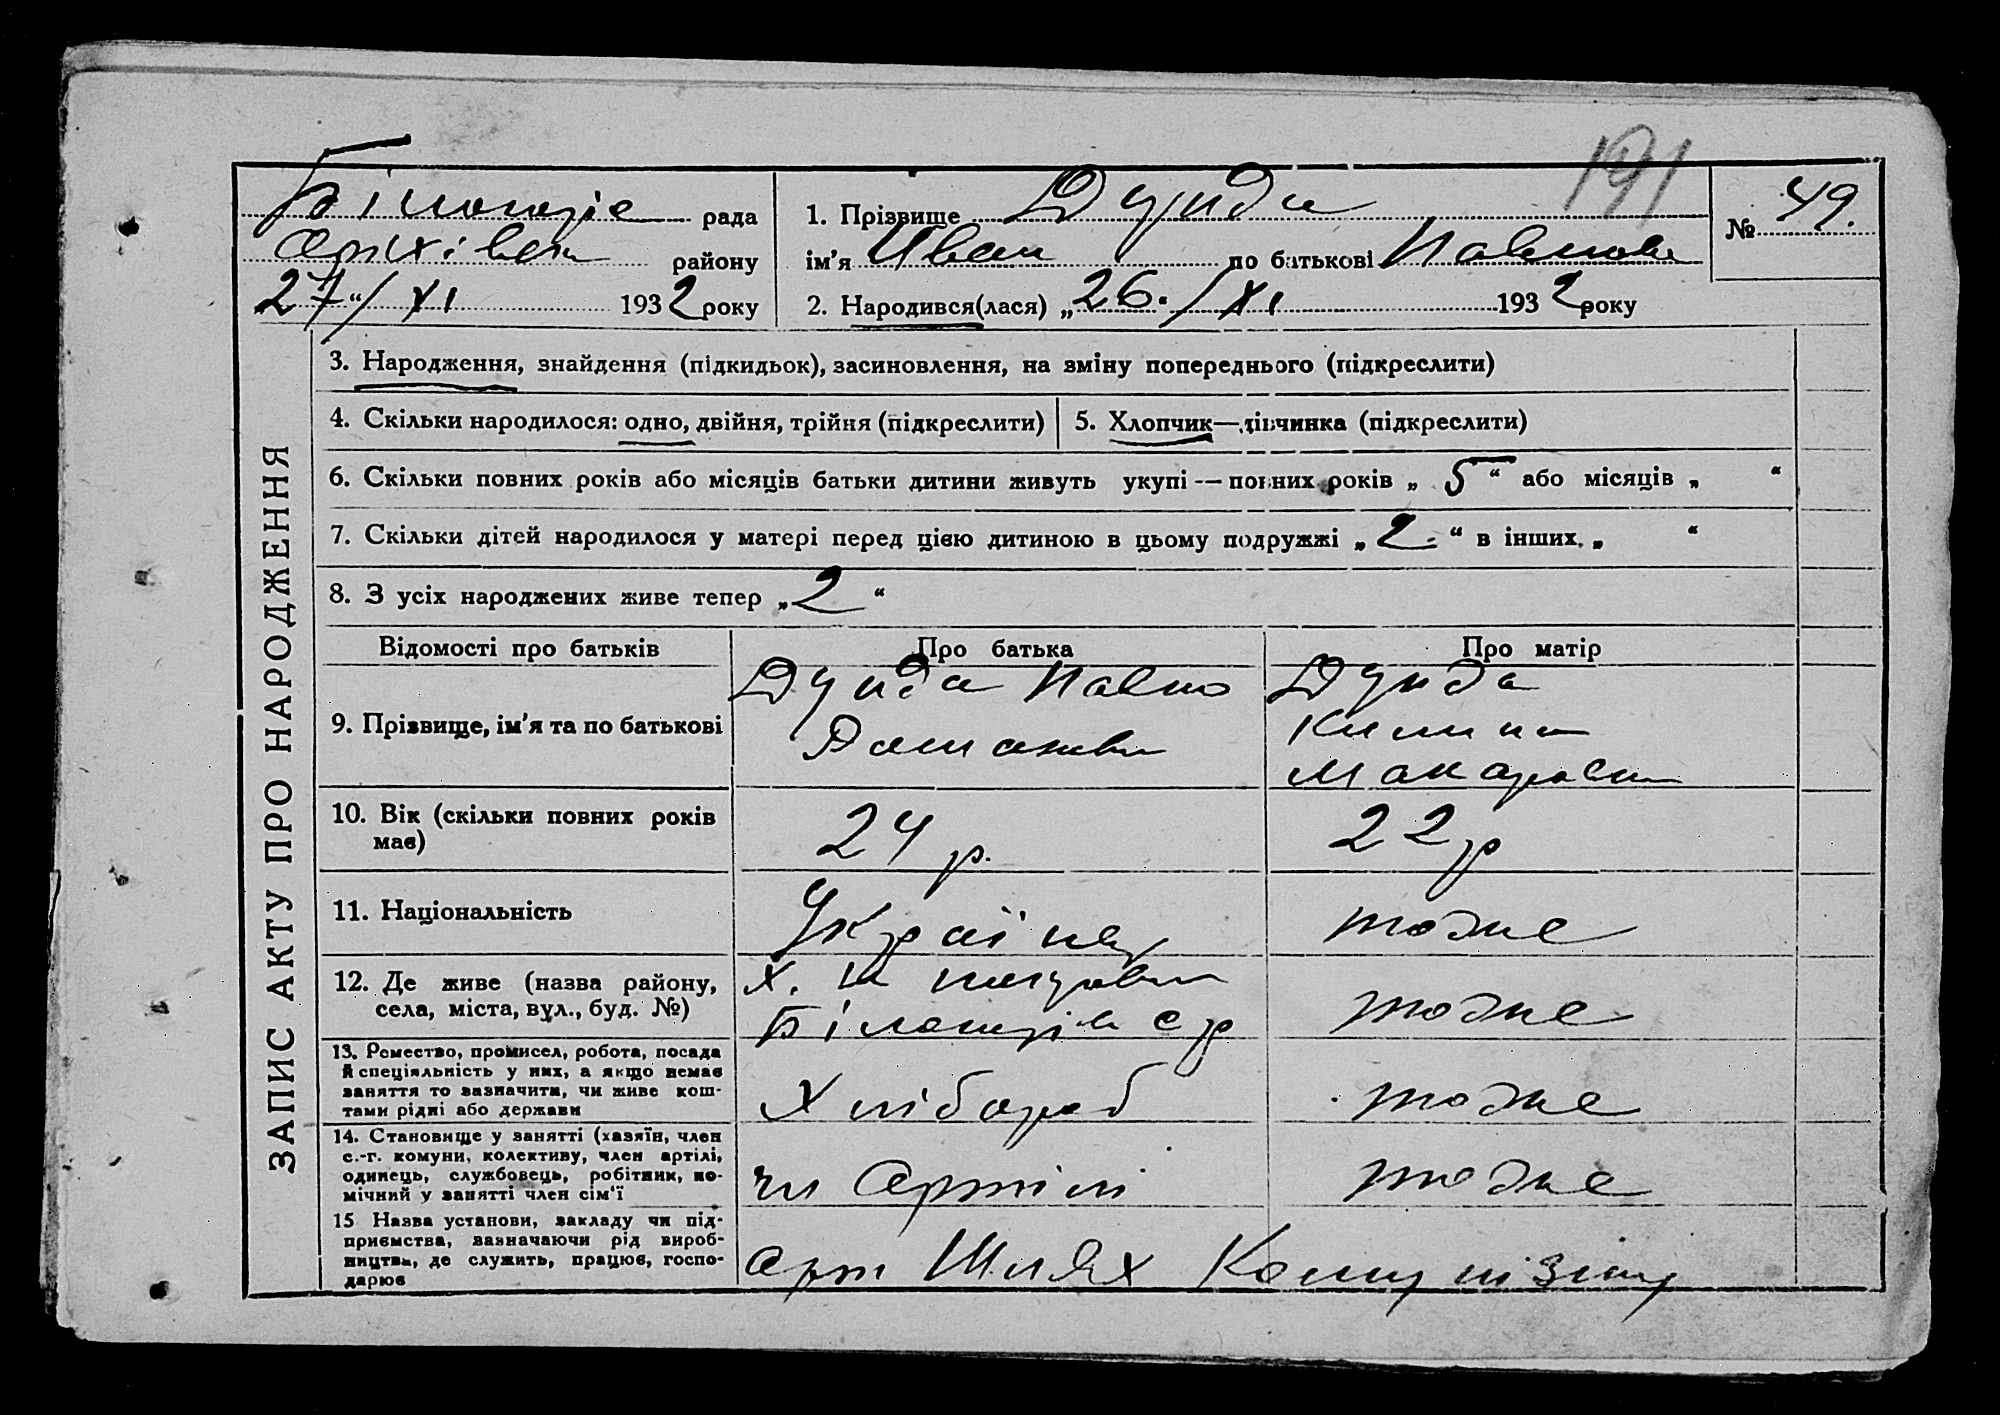 191
рада
1. Прізвище Дунда
№ 49.
району
ім’я Иван по батькові
27 “ / XI 1932 року
2. Народився(лася) „ 26. / XI 1932 року
ЗАПИС АКТУ ПРО НАРОДЖЕННЯ
3. Народження, знайдення (підкидьок), засиновлення, на зміну попереднього (підкреслити)
4. Скільки народилося: одно, двійня, трійня (підкреслити)
5. Хлопчик—дівчинка (підкреслити)
6. Скільки повних років або місяців батьки дитини живуть укупі — повних років „ 5 “ або місяців „ “
7. Скільки дітей народилося у матері перед цією дитиною в цьому подружжі „ 2 “ в інших „ “
8. З усіх народжених живе тепер „ 2 “
Відомості про батьків
Про батька
Про матір
9. Прізвище, ім’я та по батькові
Дунда Павло
Дунда
10. Вік (скільки повних років
має)
24 р.
22 р
11. Національність
Українец
тоже
12. Де живе (назва району,
села, міста, вул., буд. №)
х.
с р
тоже
13. Ремество, промисел, робота, посада
й спеціяльність у них, а якщо немає
заняття то зазначити, чи живе кош-
тами рідні або держави
Хлібороб
тоже
14. Становище у занятті (хазяїн, член
с.-г. комуни, колективу, член артілі,
одинець, службовець, робітник, по-
мічний у занятті член сім’ї
чл Артілі
тоже
15 Назва установи, закладу чи під-
приємства, зазначаючи рід вироб-
ництва, де служить, працює, госпо-
дарює
арт Шлях Комунізму